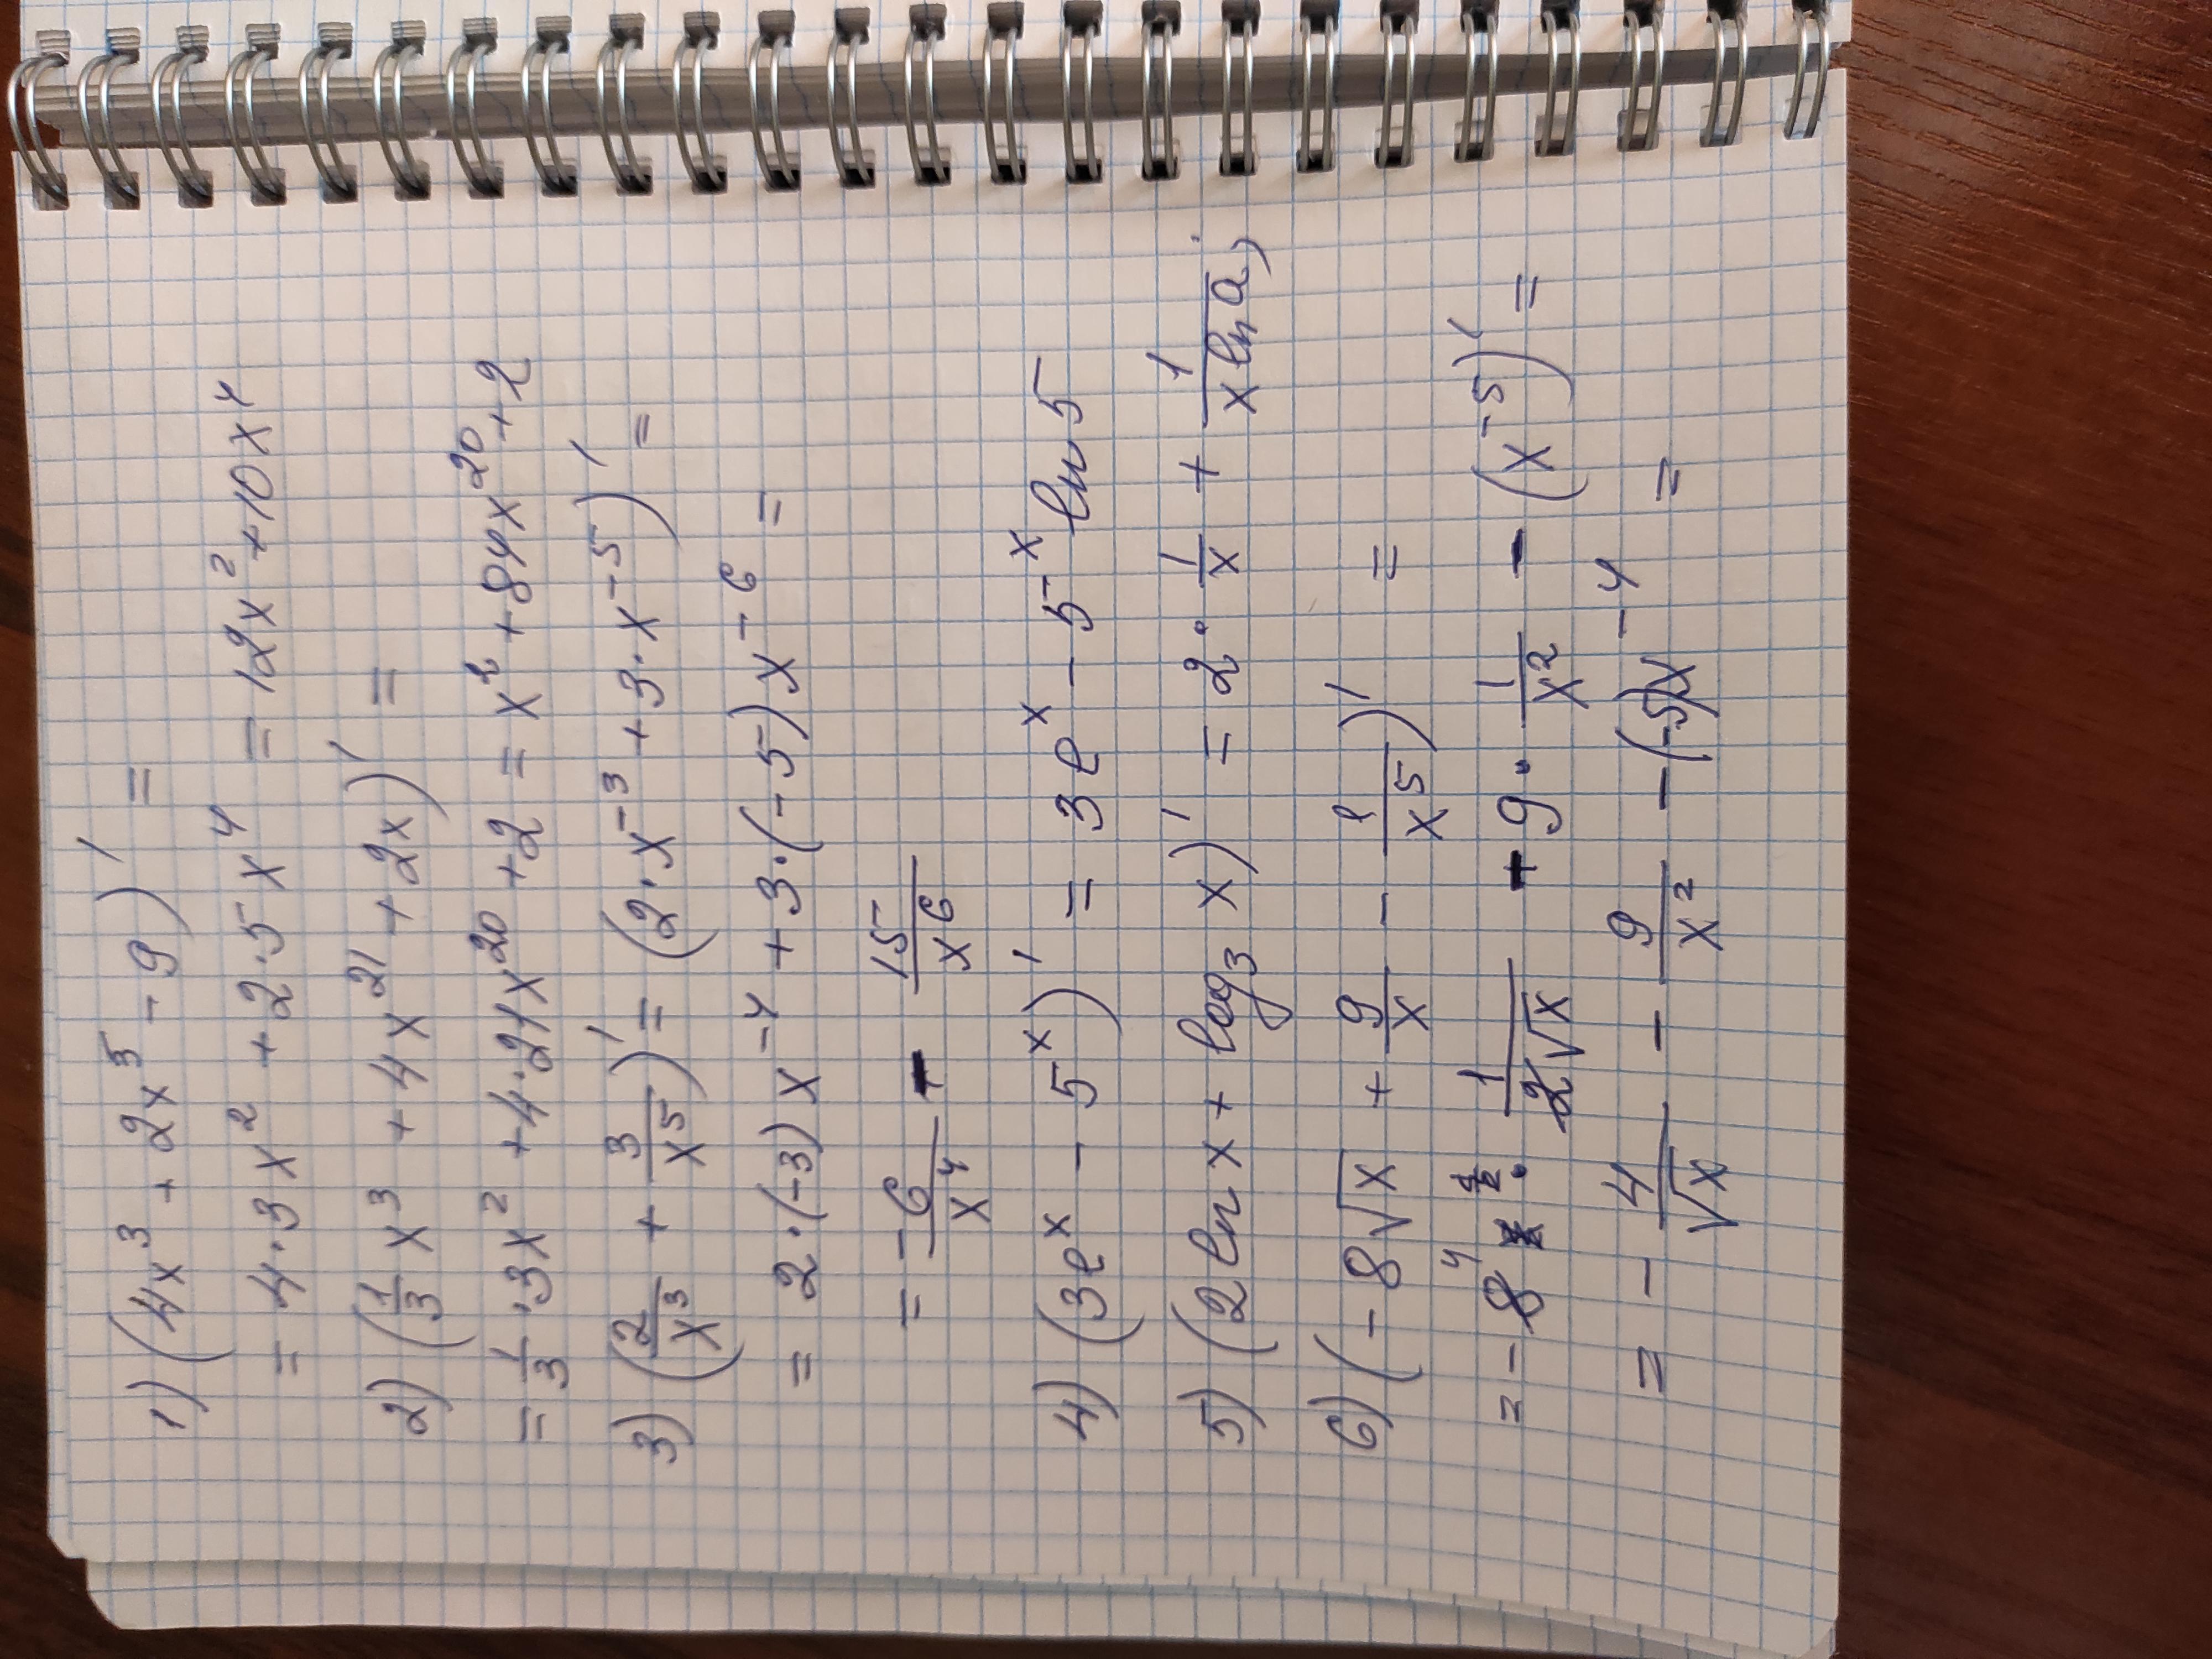 1) (4x³ + 2x⁵ - 9)' =
= 4·3x² + 2·5x⁴ = 12x² + 10x⁴
2) (1/3 x³ + 4x²¹ + 2x)' =
= 1/3 · 3x² + 4·21x²⁰ + 2 = x² + 84x²⁰ + 2
3) (2/x³ + 3/x⁵)' = (2·x⁻³ + 3·x⁻⁵)' =
= 2·(-3)x⁻⁴ + 3·(-5)x⁻⁶ =
= -6/x⁴ - 15/x⁶
4) (3eˣ - 5ˣ)' = 3eˣ - 5ˣ ln 5
5) (2 ln x + log₃ x)' = 2 · 1/x + 1/(x ln a)
6) (-8√x + 9/x - 1/x⁵)' =
= -8 4 · 1/(2√x) + 9 · 1/x² - (x⁻⁵)' =
= - 4/√x - 9/x² - (-5)x⁻⁴ =